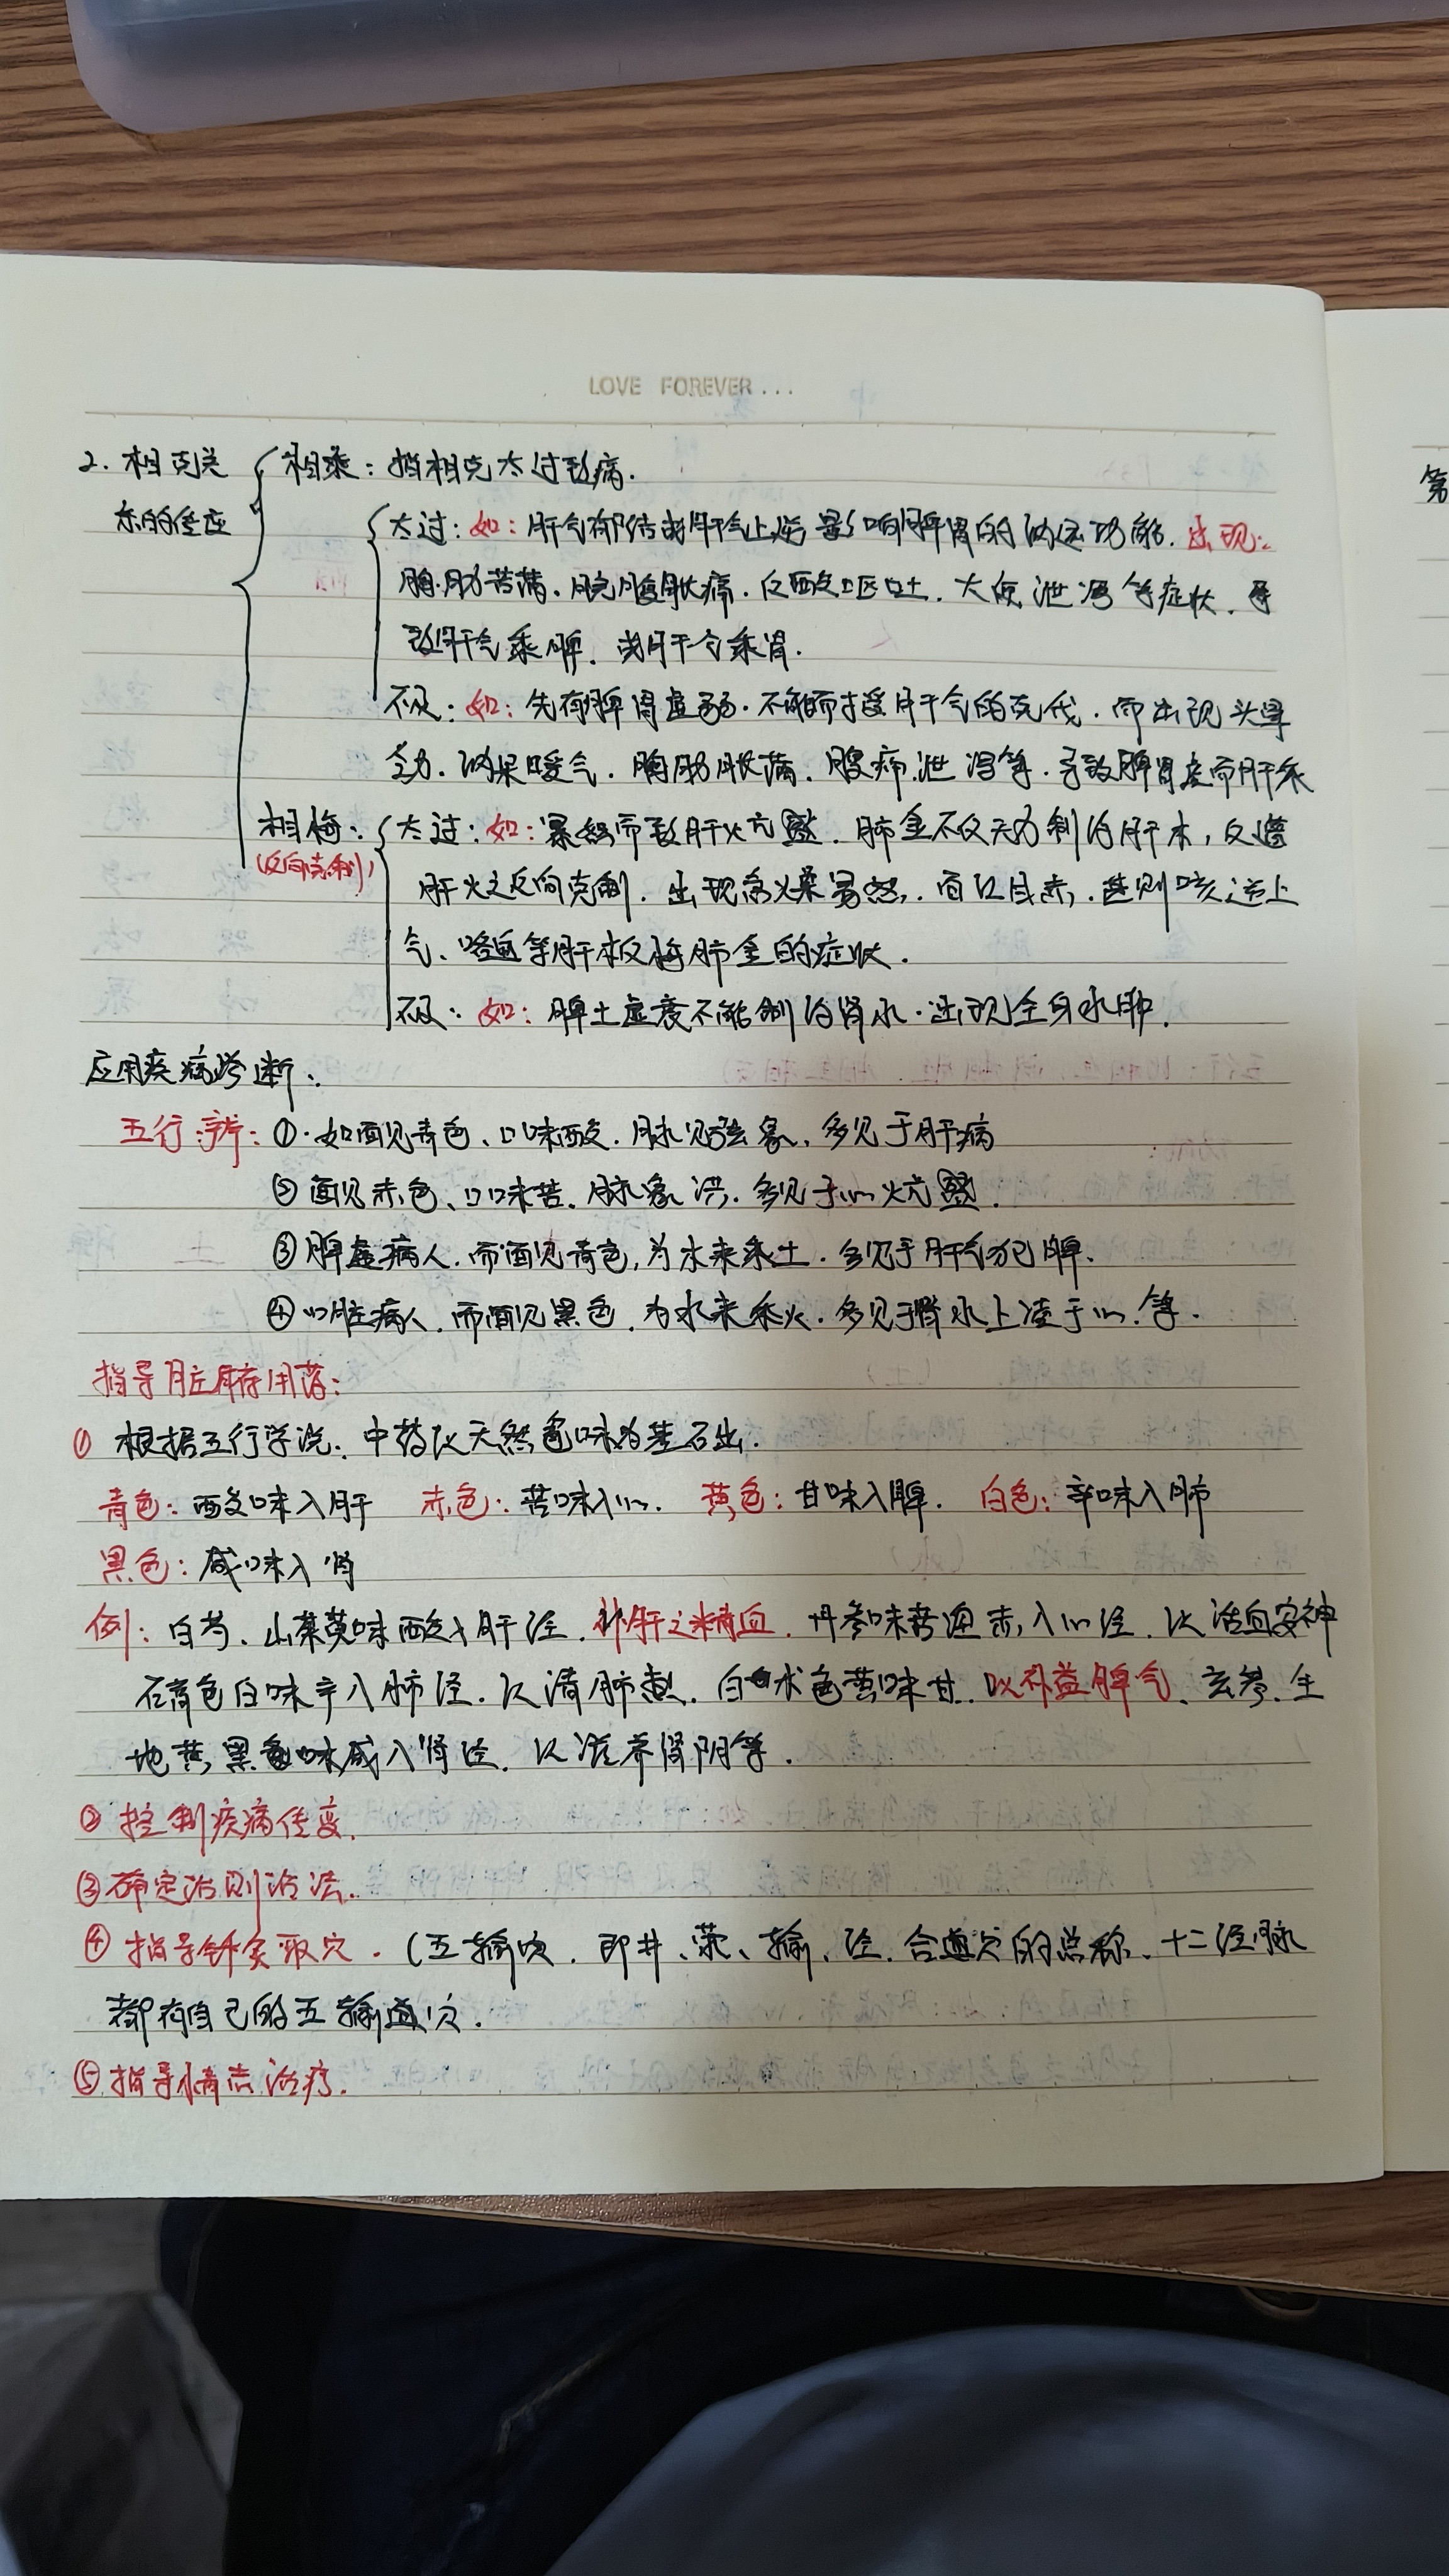 LOVE FOREVER...
2. 相克关 相乘：指相克太过致病.
系的传变
太过：如：肝气郁结或肝气上逆影响脾胃的纳运功能. 出现：
胸胁苦满. 脘腹胀痛. 反酸呕吐. 大便泄泻等症状. 导
致肝气乘脾. 或肝气乘胃.
不及：如：先有脾胃虚弱. 不能耐受肝气的克伐. 而出现头晕
乏力. 纳呆嗳气. 胸胁胀满. 腹痛泄泻等. 导致脾胃虚而肝乘
相侮： 太过：如：暴怒而致肝火亢盛. 肺金不仅无力制约肝木, 反遭
(反向克制)
肝火之反向克制. 出现急躁易怒. 面红目赤. 甚则咳逆上
气、咯血等肝木反侮肺金的症状.
不及：如：脾土虚衰不能制约肾水. 出现全身水肿.
应用疾病诊断：
五行辨：①. 如面见青色、口味酸. 脉见弦象, 多见于肝病
② 面见赤色、口味苦. 脉象洪. 多见于心火亢盛.
③ 脾虚病人. 而面见青色, 为木来乘土. 多见于肝气犯脾.
④ 心脏病人. 而面见黑色. 为水来乘火. 多见于肾水上凌于心. 等.
指导脏腑用药：
① 根据五行学说. 中药以天然色味为基石出.
青色：酸味入肝 赤色：苦味入心. 黄色：甘味入脾. 白色：辛味入肺
黑色：咸味入肾
例：白芍、山茱萸味酸入肝经. 补肝之精血. 丹参味苦色赤, 入心经. 以活血安神
石膏色白味辛入肺经. 以清肺热. 白术色黄味甘. 以补益脾气、玄参. 生
地黄黑色味咸入肾经. 以滋养肾阴等.
② 控制疾病传变.
③ 确定治则治法.
④ 指导针灸取穴. (五输穴. 即井、荥、输、经、合道穴的总称、十二经脉
都有自己的五输血穴.
⑤ 指导情志治疗.
第